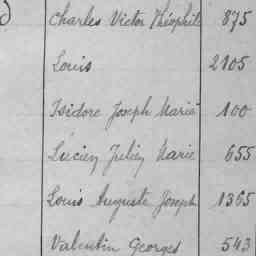 Charles Victor Théophile 875
Louis 2105
Isidore Joseph Marie 100
Lucien Julien Marie 655
Louis Auguste Joseph 1365
Valentin Georges 543